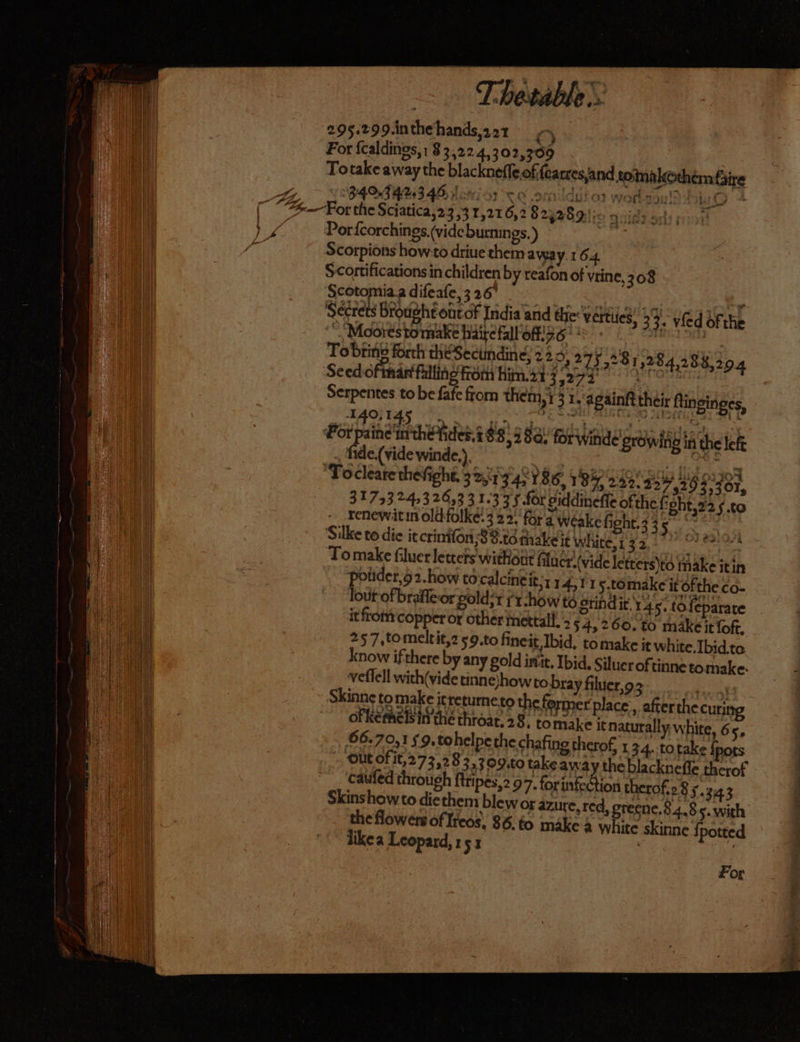 The table.
295.299.in the hands,221
For ſcaldings,183,224,302,309
To take away the blackneſſe of ſcarres,and to make them faire
340.342.346
For the Sciatica,23,31,216,282,289
For ſcorchings.(vide burnings.)
Scorpions how to driue them away.164
Scortifications in children by reaſon of vrine,308
Scotomia.a diſeaſe,326
Secrets brought out of India and the vertues, 33. vſed of the
Moores to make haire fall off.36
To bring forth the Secundine, 220, 275,281,284,288,294
Seed of man falling from him.213,272
Serpentes to be ſafe from them,131. againſt their ſtinginges,
140,145
For paine in the ſides,188,280. for winde growing in the left
ſide.(vide winde.)
To cleare the ſight. 186, 187,
317,324,326,331.335.for giddineſſe of the ſight,225.to
renew it in old folke.322. for a weake ſight.335
Silke to die it crimſon,88.to make it white,132
To make ſiluer letters without ſiluer.(vide letters)to make it in
pouder,92.how to calcine it,114,115.to make it of the co-
lour of braſſe or gold,151.how to grind it.145. to ſeparate
it from copper or other mettall. 254,260. to make it ſoft.
257,to melt it,259.to fine it,Ibid. to make it white.Ibid.to
know if there by any gold in it. Ibid. Siluer of tinne to make.
veſſell with(vide tinne)how to bray ſiluer,93
Skinne to make it returne to the former place, after the curing
of kernels in the throat.28. to make it naturally white, 65.
66.70,159.to helpe the chafing therof, 134. to take ſpots
out of it,273,283,309.to take away the blackneſſe therof
cauſed through ſtripes,297. for infection therof.285.343
Skins how to die them blew or azure, red, greene.84.85. with
the flowers of Ireos, 86. to make a white skinne ſpotted
like a Leopard,151
For